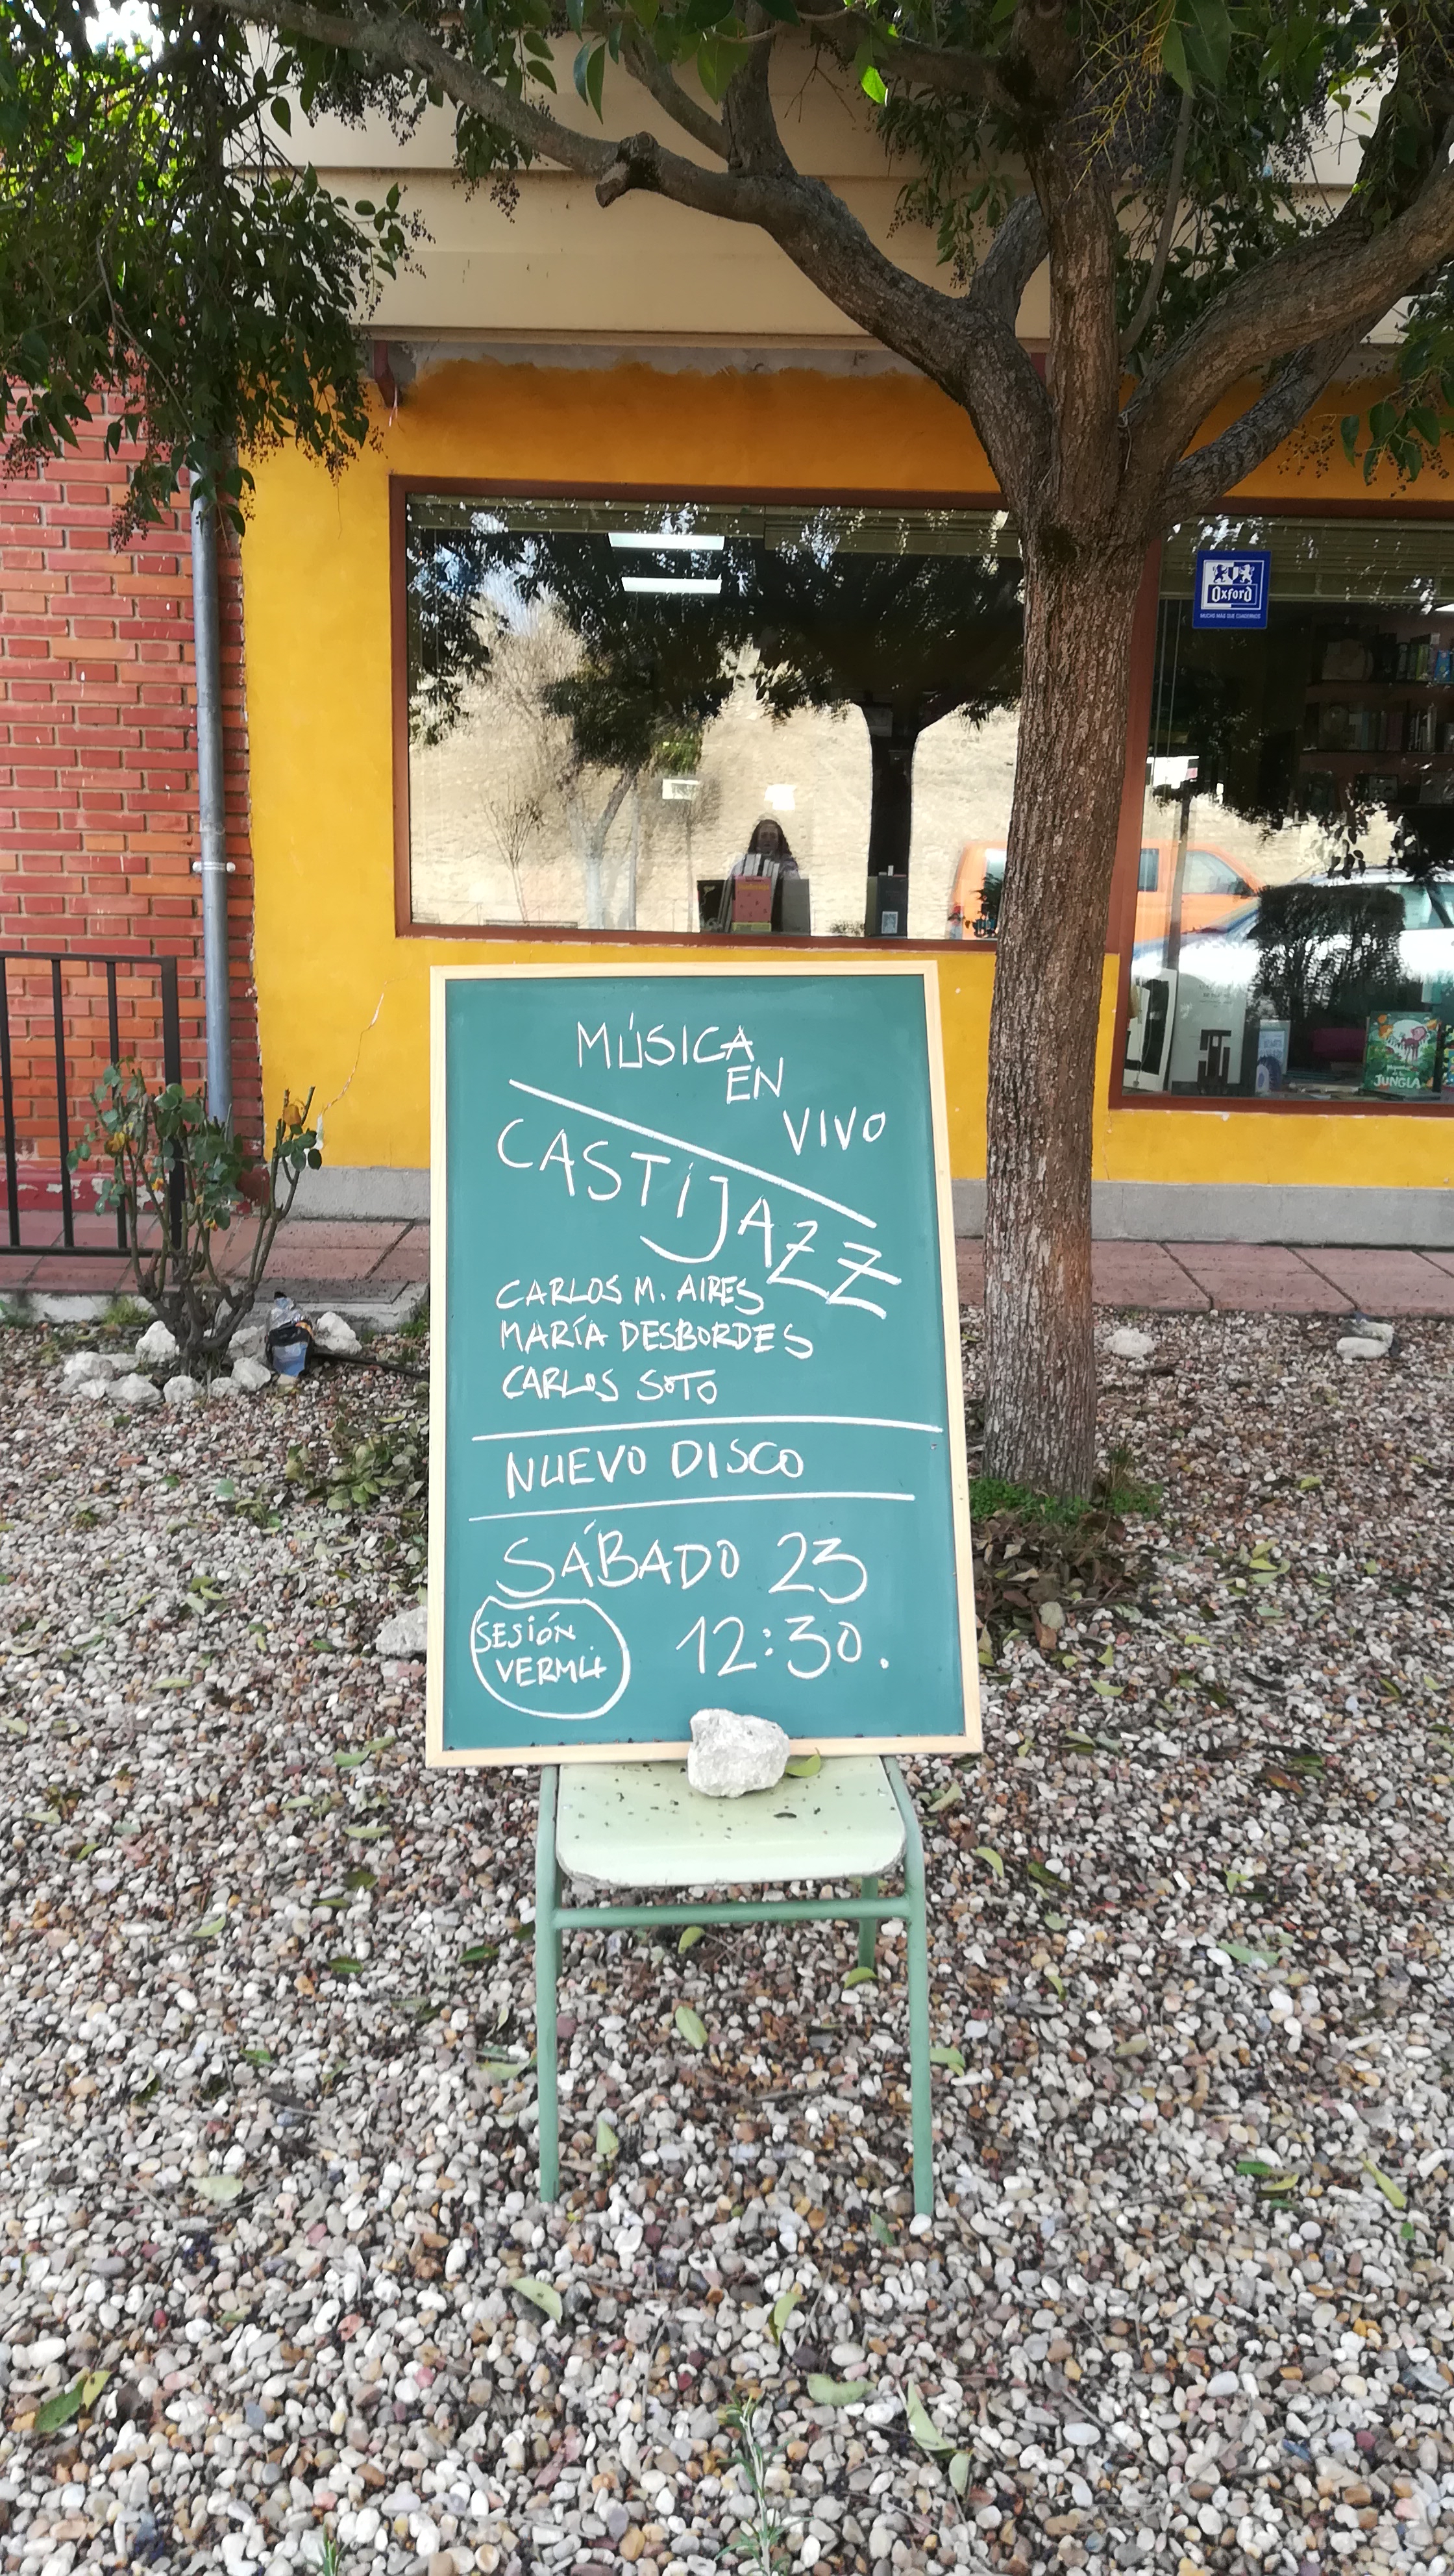 Oxford
MUCHO MÁS QUE CUADERNOS
JUNGLA
MÚSICA
EN
VIVO
CASTIJAZZ
CARLOS M. AIRES
MARÍA DESBORDES
CARLOS SOTO
NUEVO DISCO
SÁBADO 23
SESIÓN
VERMU
12:30.